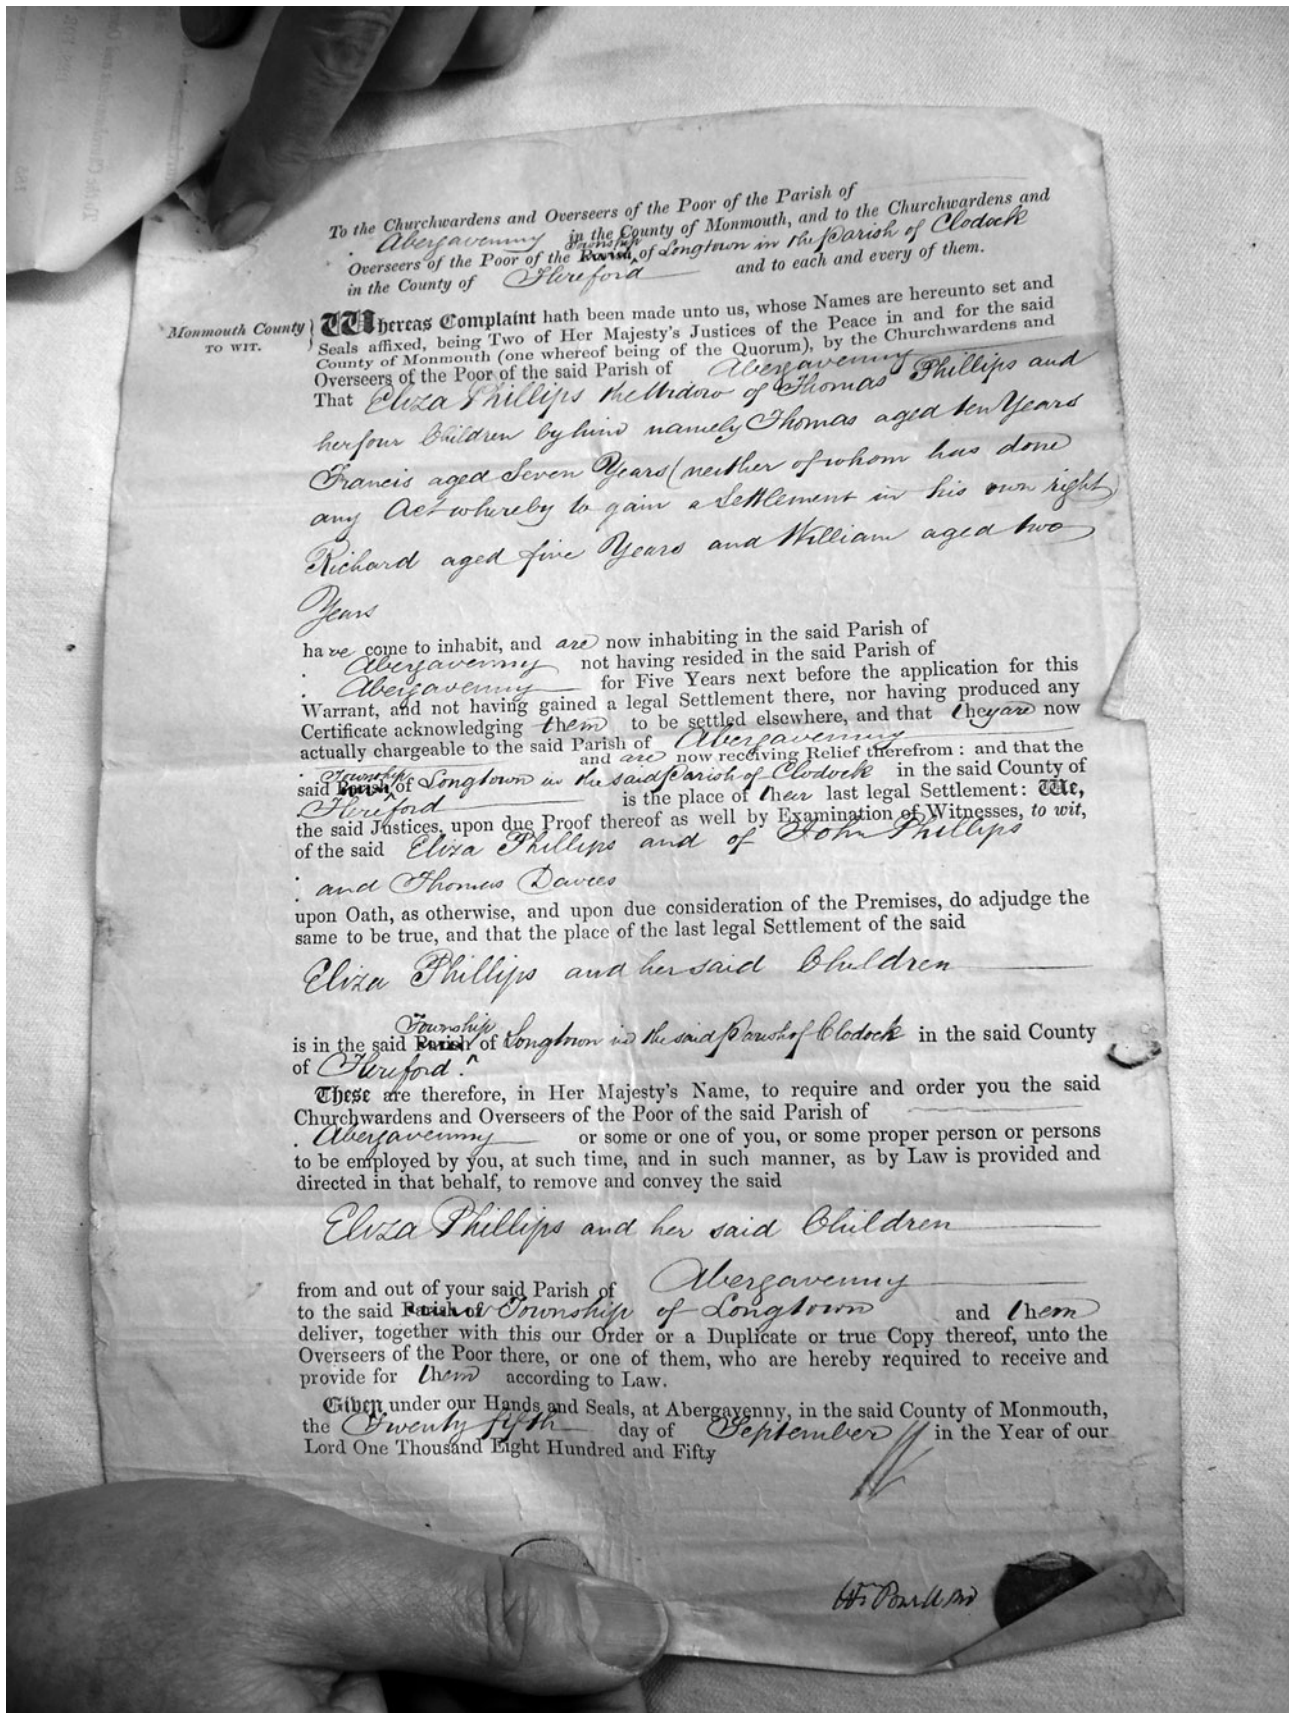 To the Churchwardens and Overseers of the Poor of the Parish of
Abergavenny in the County of Monmouth, and to the Churchwardens and
Overseers of the Poor of the Parish Township of Longtown in the Parish of Clodock
in the County of Hereford and to each and every of them.
Monmouth County
TO WIT.
Whereas Complaint hath been made unto us, whose Names are hereunto set and
Seals affixed, being Two of Her Majesty's Justices of the Peace in and for the said
County of Monmouth (one whereof being of the Quorum), by the Churchwardens and
Overseers of the Poor of the said Parish of Abergavenny
That Eliza Phillips the Widow of Thomas Phillips and
her four Children by him namely Thomas aged ten Years
Francis aged Seven Years (neither of whom has done
any Act whereby to gain a Settlement in his own right)
Richard aged five Years and William aged two
Years
have come to inhabit, and are now inhabiting in the said Parish of
Abergavenny not having resided in the said Parish of
Abergavenny for Five Years next before the application for this
Warrant, and not having gained a legal Settlement there, nor having produced any
Certificate acknowledging them to be settled elsewhere, and that they are now
actually chargeable to the said Parish of Abergavenny
and are now receiving Relief therefrom: and that the
said Parish Township of Longtown in the said Parish of Clodock in the said County of
Hereford is the place of their last legal Settlement: We,
the said Justices, upon due Proof thereof as well by Examination of Witnesses, to wit,
of the said Eliza Phillips and of John Phillips
and Thomas Davies
upon Oath, as otherwise, and upon due consideration of the Premises, do adjudge the
same to be true, and that the place of the last legal Settlement of the said
Eliza Phillips and her said Children
Township
is in the said Parish of Longtown in the said Parish of Clodock in the said County
of Hereford.
These are therefore, in Her Majesty's Name, to require and order you the said
Churchwardens and Overseers of the Poor of the said Parish of
Abergavenny or some or one of you, or some proper person or persons
to be employed by you, at such time, and in such manner, as by Law is provided and
directed in that behalf, to remove and convey the said
Eliza Phillips and her said Children
from and out of your said Parish of Abergavenny
to the said Parish of Township of Longtown and them
deliver, together with this our Order or a Duplicate or true Copy thereof, unto the
Overseers of the Poor there, or one of them, who are hereby required to receive and
provide for them according to Law.
Given under our Hands and Seals, at Abergavenny, in the said County of Monmouth,
the Twenty fifth day of September in the Year of our
Lord One Thousand Eight Hundred and Fifty
Wm Powell